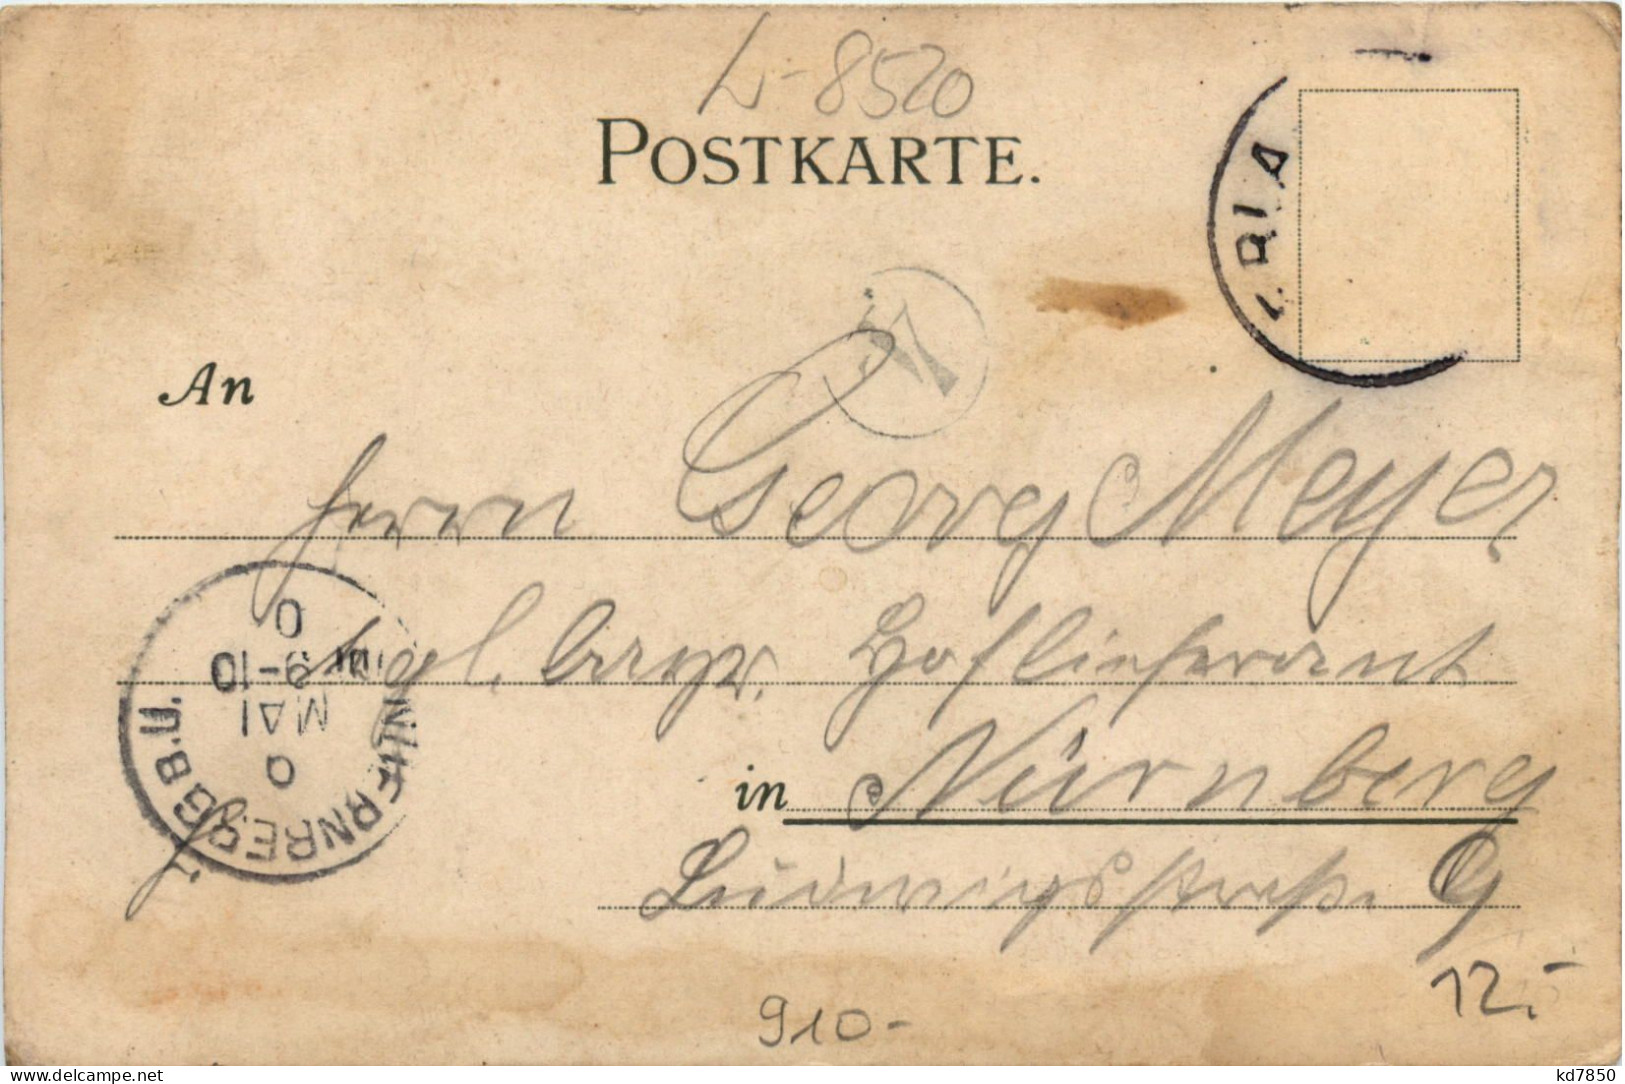 L-8520
POSTKARTE.
An
Herrn Georg Meyer
kgl. bayr. Hoflieferant
in Nürnberg
Ludwigsstraße 9
MAI
9-10
12.-
910.-
www.delcampe.net
kd7850